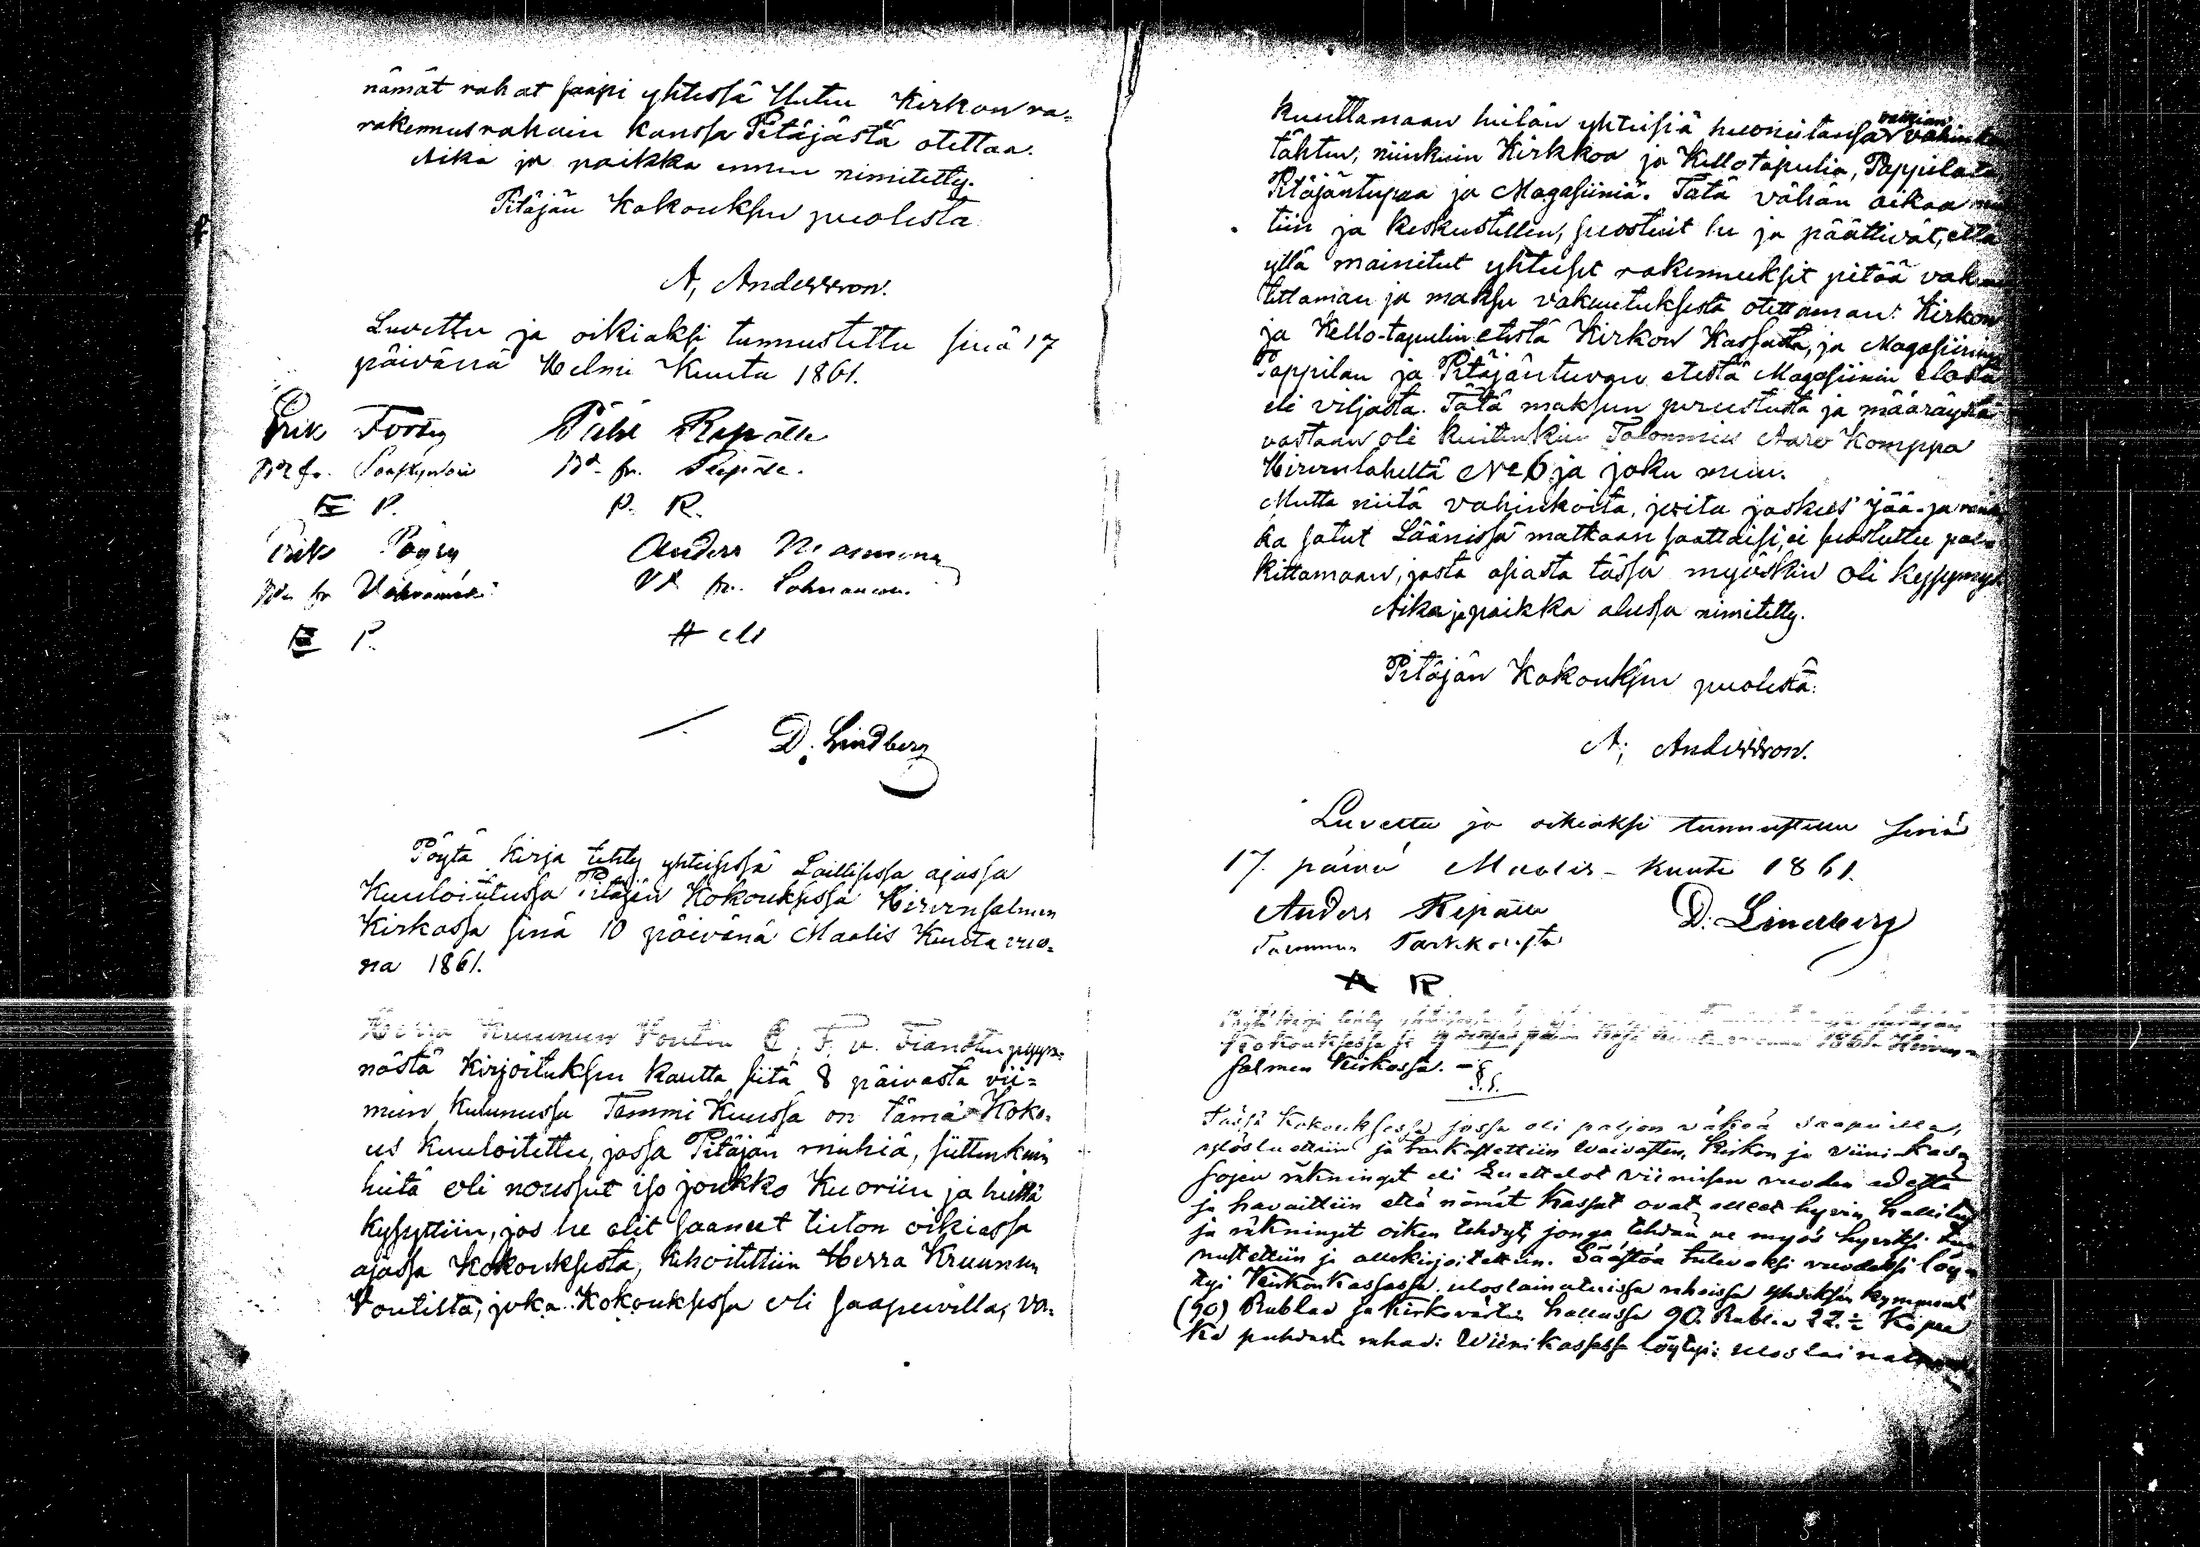 nämät rahat saapi yhtessä Uutu Kirkon ra=
rakennusrahain kanssa Pitäjästä otettaa.
Aika ja paikka ennen nimitetty.
Pitäjän Kokouksen puolesta
A, Andersson.
Luvettu ja oikiaksi tunnustettu sinä 17
päivänä Helmi Kuuta 1861.
Erik
Repälle
fr.
E P.
P. R.
Erik Pöyry
Anders
fr
fr.
E P.
A M
D. Lindberg
Pöytä Kirja tehty yhteisessä Laillisessa ajassa
Kuuloitetussa Pitäjän Kokouksessa Hirvensalmen
Kirkossa sinä 10 päivänä Maalis Kuuta vuo=
na 1861.
Herra Kruunun Voutin C. F. v. Fiandtin pyyn=
nöstä Kirjoituksen kautta siitä 8 päivästä vii=
mein kulunussa Tammi Kuussa on tämä Koko-
us Kuuloitettu, jossa Pitäjän miehiä, sittenkuin
heitä oli noussut iso joukko Kuoriin ja heiltä
kysyttiin, jos he olit saaneet tieton oikiassa
ajassa Kokouksesta, kehoitettiin Herra Kruunun
Voutista, joka Kokouksessa oli saapuvilla, va-
kuuttamaan heidän yhteisiä huoneitansa valkian
tähten, niinkuin Kirkkoa ja Kellotapulia, Pappilata
Pitäjäntupaa ja Magasiiniä. Tätä vähän aikaa
tiin ja keskustellen, suostuit he ja päättivät, että
yllä mainitut yhteiset rakennukset pitää
tettaman ja maksu vakuutuksesta otettaman: Kirkon
ja Kello-tapulin etestä Kirkon Kassasta, ja Magasiinin
Pappilan ja Pitäjäntuvan etestä Magasiinin elosta
eli viljasta. Tätä maksun perustusta ja määräystä
vastaan oli kuitenkin Talonmies Aaro Komppa
Hirvenlaheltä No 6 ja joku muu.
Mutta niitä vahinkoita, joita joskus jää-ja
ka satut Läänissä matkaan saattaisi, ei suostuttu pal=
kittamaan, josta asiasta tässä myöskin oli kysymys
Aika ja paikka alussa nimitetty.
Pitäjän Kokouksen puolesta:
A; Andersson.
Luvettu ja oikiaksi tunnustettu sinä
17. päivä Maalis-kuuta 1861.
Anders Repälle
D. Lindberg
A R
Pöytä Kirja tehty
Kokouksessa 1861 Hirven=
salmen Kirkossa. –
§.1.
Tässä Kokouksessa jossa oli paljon väkeä saapuilla,
ylösluettiin ja tarkastettiin Waivasten, Kirkon ja Viini-Kas=
sojen räkningit eli Luettelot viimeisen vuoden edestä
ja havaittiin että nämät kassat ovat olleet hyvin hallitut
ja räkningit oiken tehdyt, jonga tehdän ne myös hyviksi
nustettiin ja allekirjoitettiin. Säästöä tulevaksi vuodeksi löy=
tyi Kirkon Kassassa uloslainatuissa rahoissa yhdeksän kymmentä
(90) Rublaa ja Kirkovärtin hallussa 90. Rublaa 22 ½ Kopea
kä puhdasta rahaa: Wiini Kassassa löytyi: uloslai